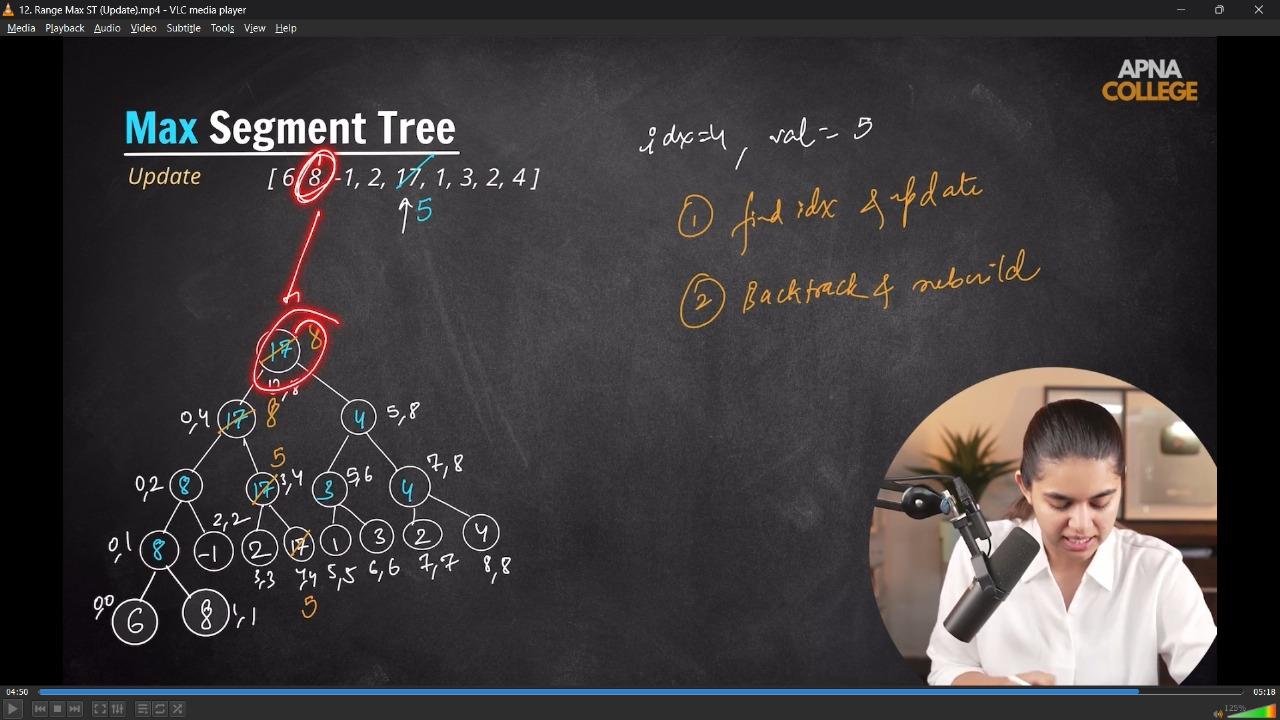 12. Range Max ST (Update).mp4 - VLC media player
Media Playback Audio Video Subtitle Tools View Help
APNA
COLLEGE
Max Segment Tree
Update [ 6, 8, -1, 2, 17, 1, 3, 2, 4 ]
5
idx=4, val= 5
① find idx & update
② Backtrack & rebuild
17 8
0,4 17 8 4 5,8
5
0,2 8 17 3,4 3 5,6 4 7,8
2,2
0,1 8 -1 2 17 1 3 2 4
3,3 4,4 5,5 6,6 7,7 8,8
0,0 6 8 1,1 5
04:50 05:18
125%